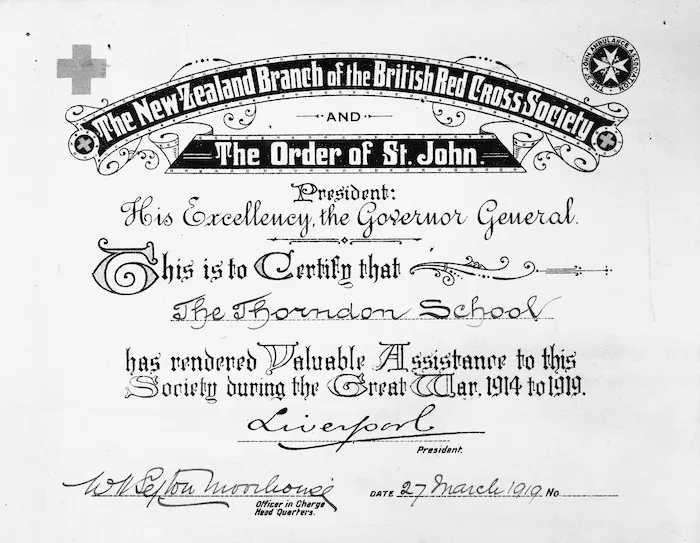 The New Zealand Branch of the British Red Cross Society
THE ST JOHN AMBULANCE ASSOCIATION
AND
The Order of St. John.
President:
His Excellency, the Governor General.
This is to Certify that
The Thorndon School
has rendered Valuable Assistance to this
Society during the Great War, 1914 to 1919.
Liverpool
President.
W Sefton Moorhouse
Officer in Charge
Head Quarters.
DATE 27 March 1919 No.